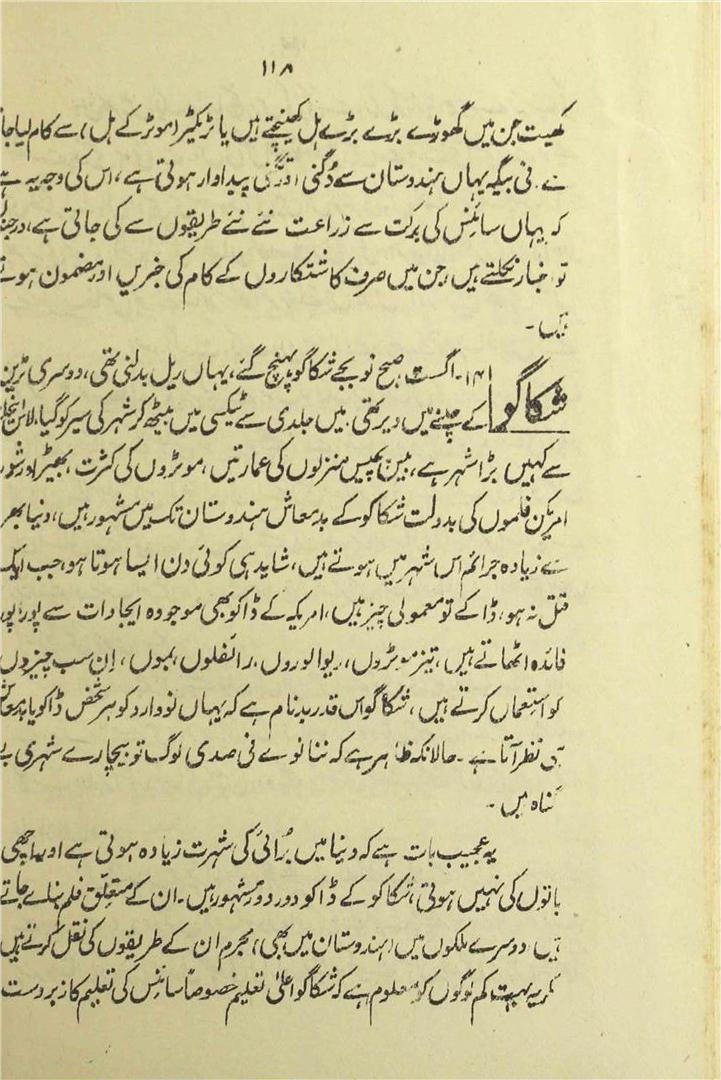 ۱۱۸
کھیت جن میں گھوڑے بڑے بڑے ہل کھینچتے ہیں یا ٹریکٹر (موٹر کے ہل) سے کام لیا جا
ہے۔ فی بیگہ یہاں ہندوستان سے دُگنی اور تگنی پیداوار ہوتی ہے، اس کی وجہ یہ ہے
کہ یہاں سائنس کی برکت سے زراعت نئے نئے طریقوں سے کی جاتی ہے،
تو اخبار نکلتے ہیں، جن میں صرف کاشتکاروں کے کام کی خبریں اور مضمون ہوتے
ہیں۔
شکاگو
۱۴۔ اگست صبح نو بجے شکاگو پہنچ گئے، یہاں ریل بدلنی تھی، دوسری ٹرین
کے چلنے میں دیر تھی۔ میں جلدی سے ٹیکسی میں بیٹھ کر شہر کی سیر کو گیا، لاس اینجلز
سے کہیں بڑا شہر ہے، بیس پچیس منزلوں کی عمارتیں، موٹروں کی کثرت، بھیڑ اور شور
امریکن فلموں کی بدولت شکاگو کے بدمعاش ہندوستان تک میں مشہور ہیں، دنیا بھر
سے زیادہ جرائم اس شہر میں ہوتے ہیں، شاید ہی کوئی دن ایسا ہوتا ہو، جب ایک
قتل نہ ہو، ڈاکے تو معمولی چیز ہیں، امریکہ کے ڈاکو بھی موجودہ ایجادات سے پورا پور
فائدہ اٹھاتے ہیں، تیز موٹروں، ریوالوروں، رائفلوں، بموں، اِن سب چیزوں
کو استعمال کرتے ہیں، شکاگو اس قدر بدنام ہے کہ یہاں نووارد کو ہر شخص ڈاکو یا بدمعاش
ہی نظر آتا ہے۔ حالانکہ ظاہر ہے کہ ننانوے فی صدی لوگ تو بیچارے شہری بے
گناہ ہیں۔
یہ عجیب بات ہے کہ دنیا میں بُرائی کی شہرت زیادہ ہوتی ہے اور اچھی
باتوں کی نہیں ہوتی، شکاگو کے ڈاکو دور دور مشہور ہیں۔ ان کے متعلق فلم بنائے جاتے
ہیں دوسرے ملکوں میں (ہندوستان میں بھی) مجرم ان کے طریقوں کی نقل کرتے ہیں
مگر یہ بہت کم لوگوں کو معلوم ہے کہ شکاگو اعلیٰ تعلیم خصوصاً سائنس کی تعلیم کا زبردست